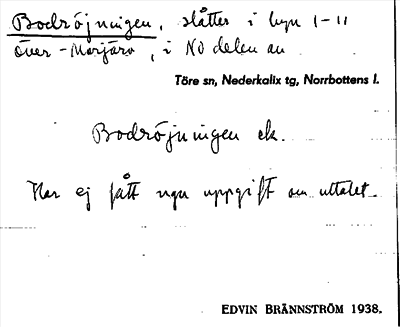 Bodröjningen, slåtter i byn 1-11
över-Morjärv, i NO delen av
Töre sn, Nederkalix tg, Norrbottens l.
Bodröjningen ek.
Har ej fått ngn uppgift om uttalet
EDVIN BRÄNNSTRÖM 1938.